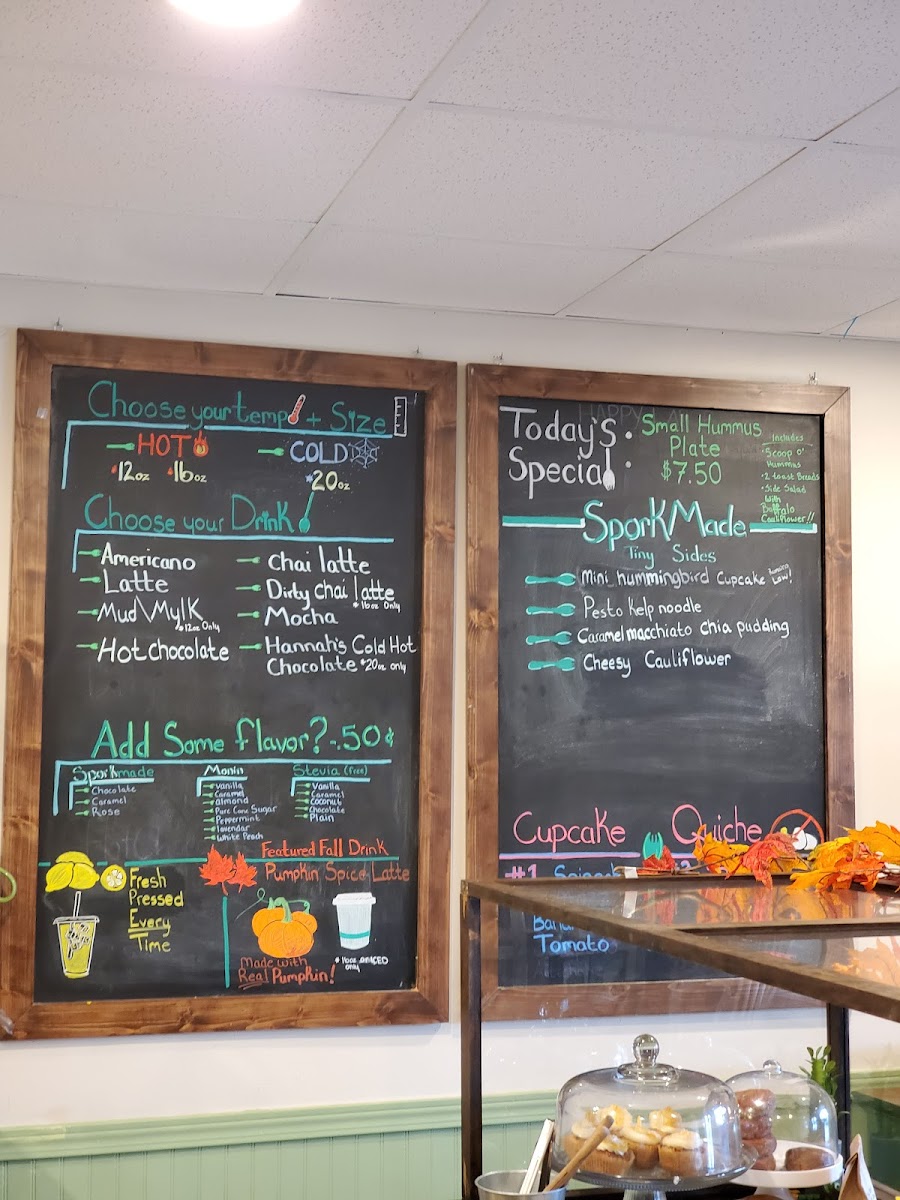 Choose your temp + Size
HOT
COLD
12oz 16oz
20oz
Choose your Drink
Americano
Latte
Mud\Mylk
*12oz Only
Hot chocolate
Chai latte
Dirty chai latte
*16oz Only
Mocha
Hannah's Cold Hot
Chocolate *20oz only
Add Some flavor? -.50¢
Sporkmade
Chocolate
Caramel
Rose
Monin
Vanilla
Caramel
almond
Pure Cane Sugar
Peppermint
lavendar
White Peach
Stevia (free)
Vanilla
Caramel
Coconut
Chocolate
Plain
Fresh
Pressed
Every
Time
Featured Fall Drink
Pumpkin Spice Latte
Made with
Real Pumpkin!
only
Today's
Special
Small Hummus
Plate
$7.50
Includes
Scoop o'
Hummus
2 toast Breads
Side Salad
With
Buffalo
Cauliflower!!
SporkMade
Tiny Sides
Mini hummingbird Cupcake
Low!
Pesto Kelp noodle
Caramel macchiato chia pudding
Cheesy Cauliflower
Cupcake
Quiche
#1
Tomato